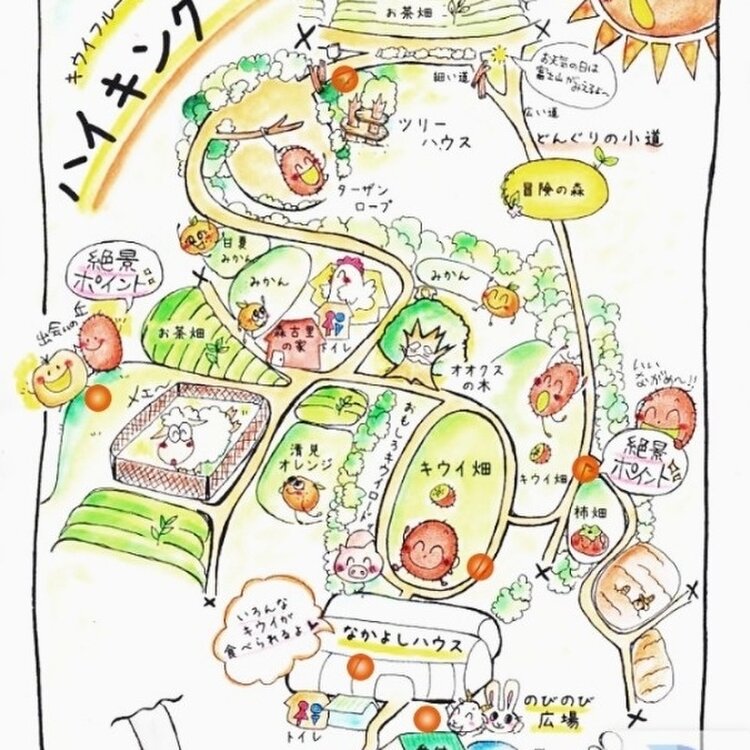 キウイフルー
ハイキング
お茶畑
細い道
お天気の日は
富士山が
みえるよ〜
広い道
どんぐりの小道
ツリー
ハウス
ターザン
ロープ
冒険の森
甘夏
みかん
みかん
みかん
絶景
ポイント
出会いの丘
お茶畑
森古里
の家
トイレ
オオクス
の木
いい
ながめ〜!!
絶景
ポイント
メェ〜
清見
オレンジ
おもしろキウイロード
キウイ畑
キウイ畑
柿畑
いろんな
キウイが
食べられるよ
なかよしハウス
のびのび
広場
トイレ